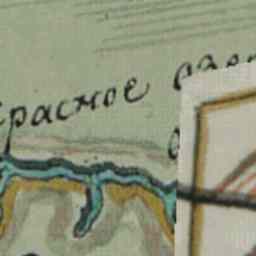 Красное озе